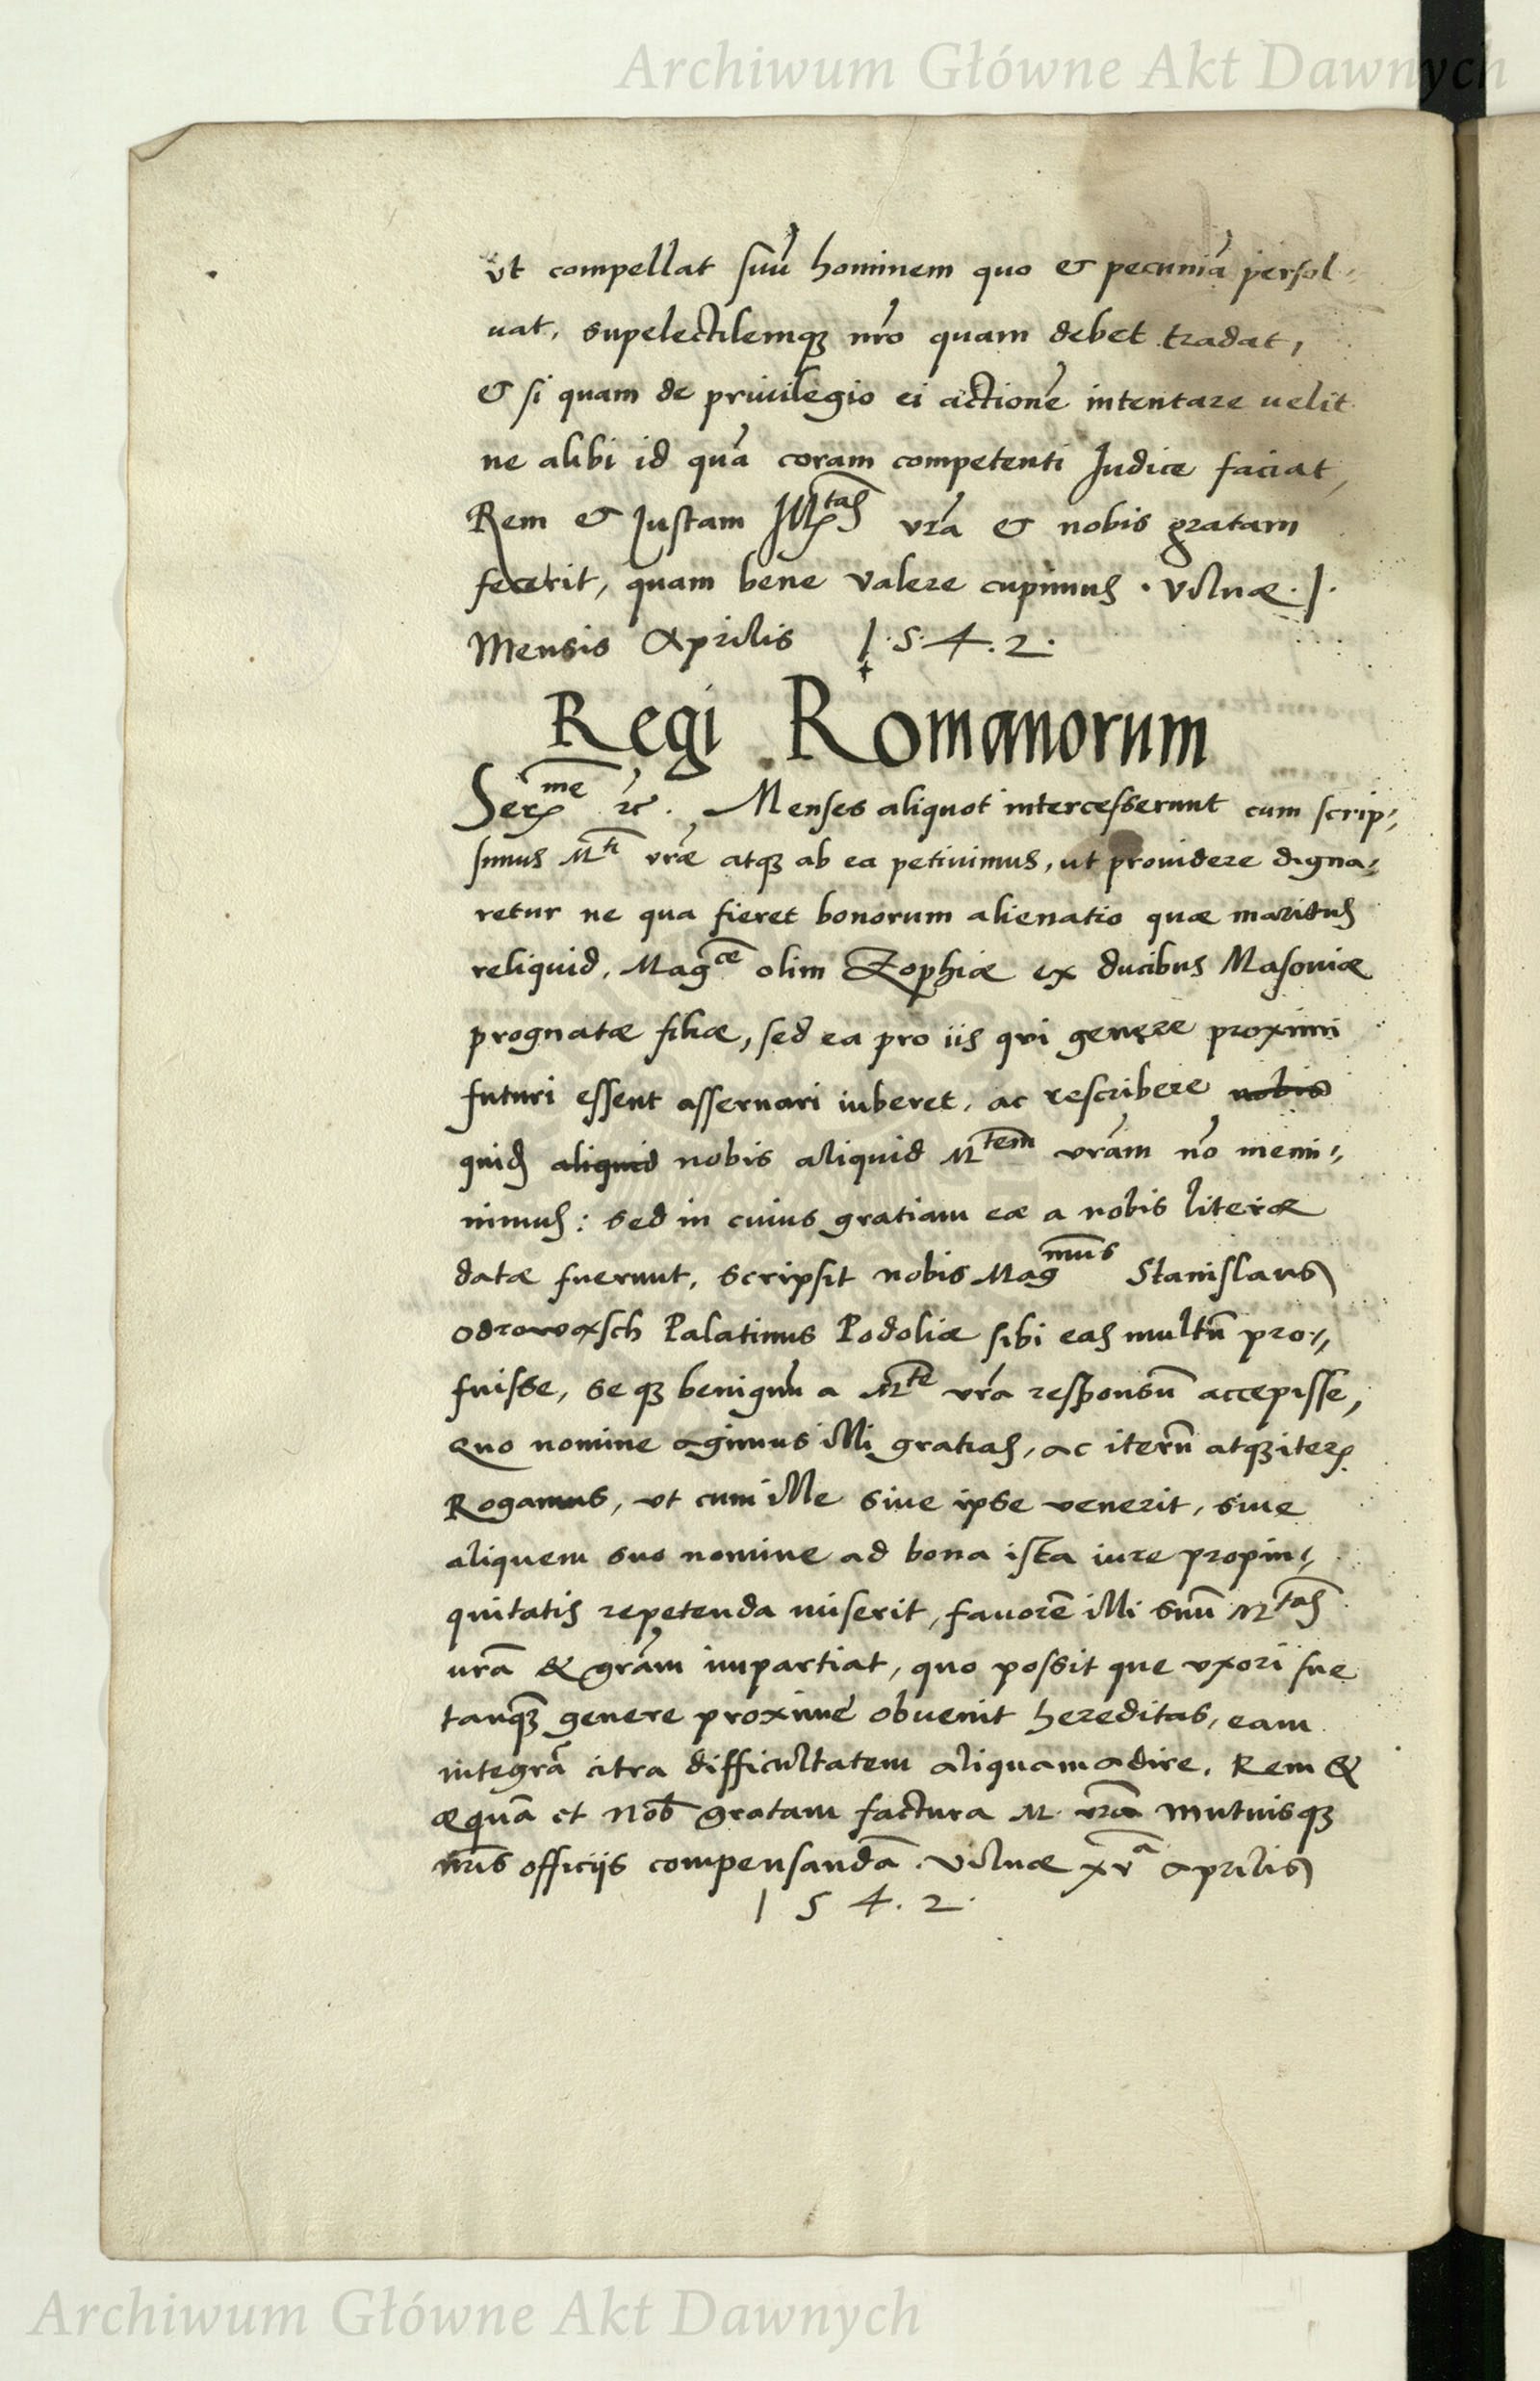 Archiwum Główne Akt Dawnych
vt compellat suū hominem quo & pecuniā persol-
uat, supelectilemq3 nr̄o quam debet tradat,
& si quam de priuilegio ei actionē intentare uelit
ne alibi id quā coram competenti Iudice faciat,
Rem & Iustam M^tas vr̄a & nobis gratam
fecerit, quam bene valere cupimus . Vilnæ . I .
Mensis Aprilis 1.5.4.2.
Regi Romanorum
Ser^me &c . Menses aliquot intercesserunt cum scrip-
simus M^ti vr̄æ atq3 ab ea petiuimus, ut prouidere digna-
retur ne qua fieret bonorum alienatio quæ maritus
reliquid, Mag^ce olim Zophiæ ex ducibus Masouiæ
prognatæ filiæ, sed ea pro iis qui genere proximi
futuri essent asseruari iuberet, ac rescribere nobis
quid aliquid nobis aliquid M^tem vrām nō memi-
nimus: sed in cuius gratiam eæ a nobis literæ
datæ fuerunt, scripsit nobis Mag^mus Stanislaus
Odrowasch Palatinus Podoliæ sibi eas multū pro-
fuisse, se q3 benignū a M^te vr̄a responsū accepisse,
quo nomine agimus illi gratias, ac iterū atq3 iter
Rogamus, vt cum ille siue ipse venerit, siue
aliquem suo nomine ad bona ista iure propin-
quitatis repetenda miserit, fauorē illi suū M^tas
urā & grām impartiat, quo possit que vxori sue
tanq3 genere proximē obuenit hereditas, eam
integrā citra difficultatem aliquam adire. Rem &
æquā et Nob gratam factura M. vrā mutuisq3
nrīs officijs compensandā . Vilnæ xv^a Aprilis
1 5 4 . 2 .
Archiwum Główne Akt Dawnych